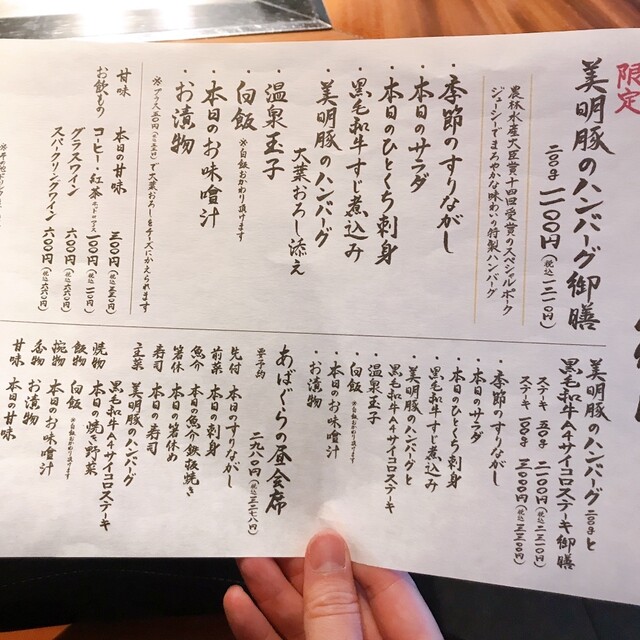 限定
美明豚のハンバーグ御膳
二〇〇g 一一〇〇円(税込一二一〇円)
農林水産大臣賞十四回受賞のスペシャルポーク
ジューシーでまろやかな味わい特製ハンバーグ
・季節のすりながし
・本日のサラダ
・本日のひとくち刺身
・黒毛和牛すじ煮込み
・美明豚のハンバーグ
大葉おろし添え
・温泉玉子
・白飯 ※白飯おかわり頂けます
・本日のお味噌汁
・お漬物
甘味 本日の甘味 三〇〇円(税込三三〇円)
お飲もの コーヒー・紅茶 一〇〇円(税込一一〇円)
グラスワイン 六〇〇円(税込六六〇円)
スパークリングワイン 六〇〇円(税込六六〇円)
美明豚のハンバーグ二〇〇gと
黒毛和牛A4サイコロステーキ御膳
ステーキ 五〇g 二一〇〇円(税込二三一〇円)
ステーキ 一〇〇g 三〇〇〇円(税込三三〇〇円)
・季節のすりながし
・本日のサラダ
・本日のひとくち刺身
・黒毛和牛すじ煮込み
・美明豚のハンバーグと
黒毛和牛A4サイコロステーキ
・温泉玉子
・白飯 ※白飯おかわり頂けます
・本日のお味噌汁
・お漬物
あばぐらの昼会席
要予約 二九八〇円(税込三二七八円)
先付 本日のすりながし
前菜 本日の刺身
魚介 本日の魚介鉄板焼き
箸休 本日の箸休め
寿司 本日の寿司
主菜 美明豚のハンバーグ
黒毛和牛A4サイコロステーキ
焼物 本日の焼き野菜
飯物 白飯 ※白飯おかわり頂けます
椀物 本日のお味噌汁
香物 お漬物
甘味 本日の甘味